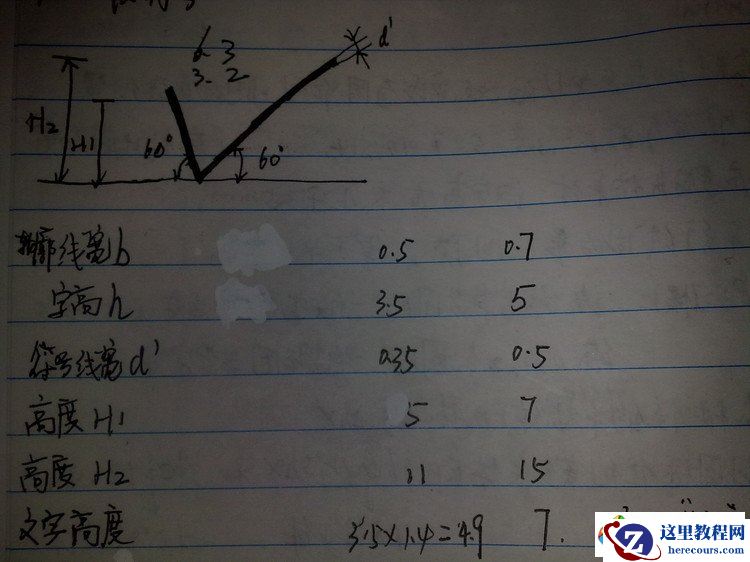 6.3
3.2
d'
H2
H1
60°
60°
轮廓线宽b 0.5 0.7
字高h 3.5 5
符号线宽d' 0.35 0.5
高度H1 5 7
高度H2 11 15
文字高度 3.5×1.4=4.9 7.
这里教程网
herecours.com